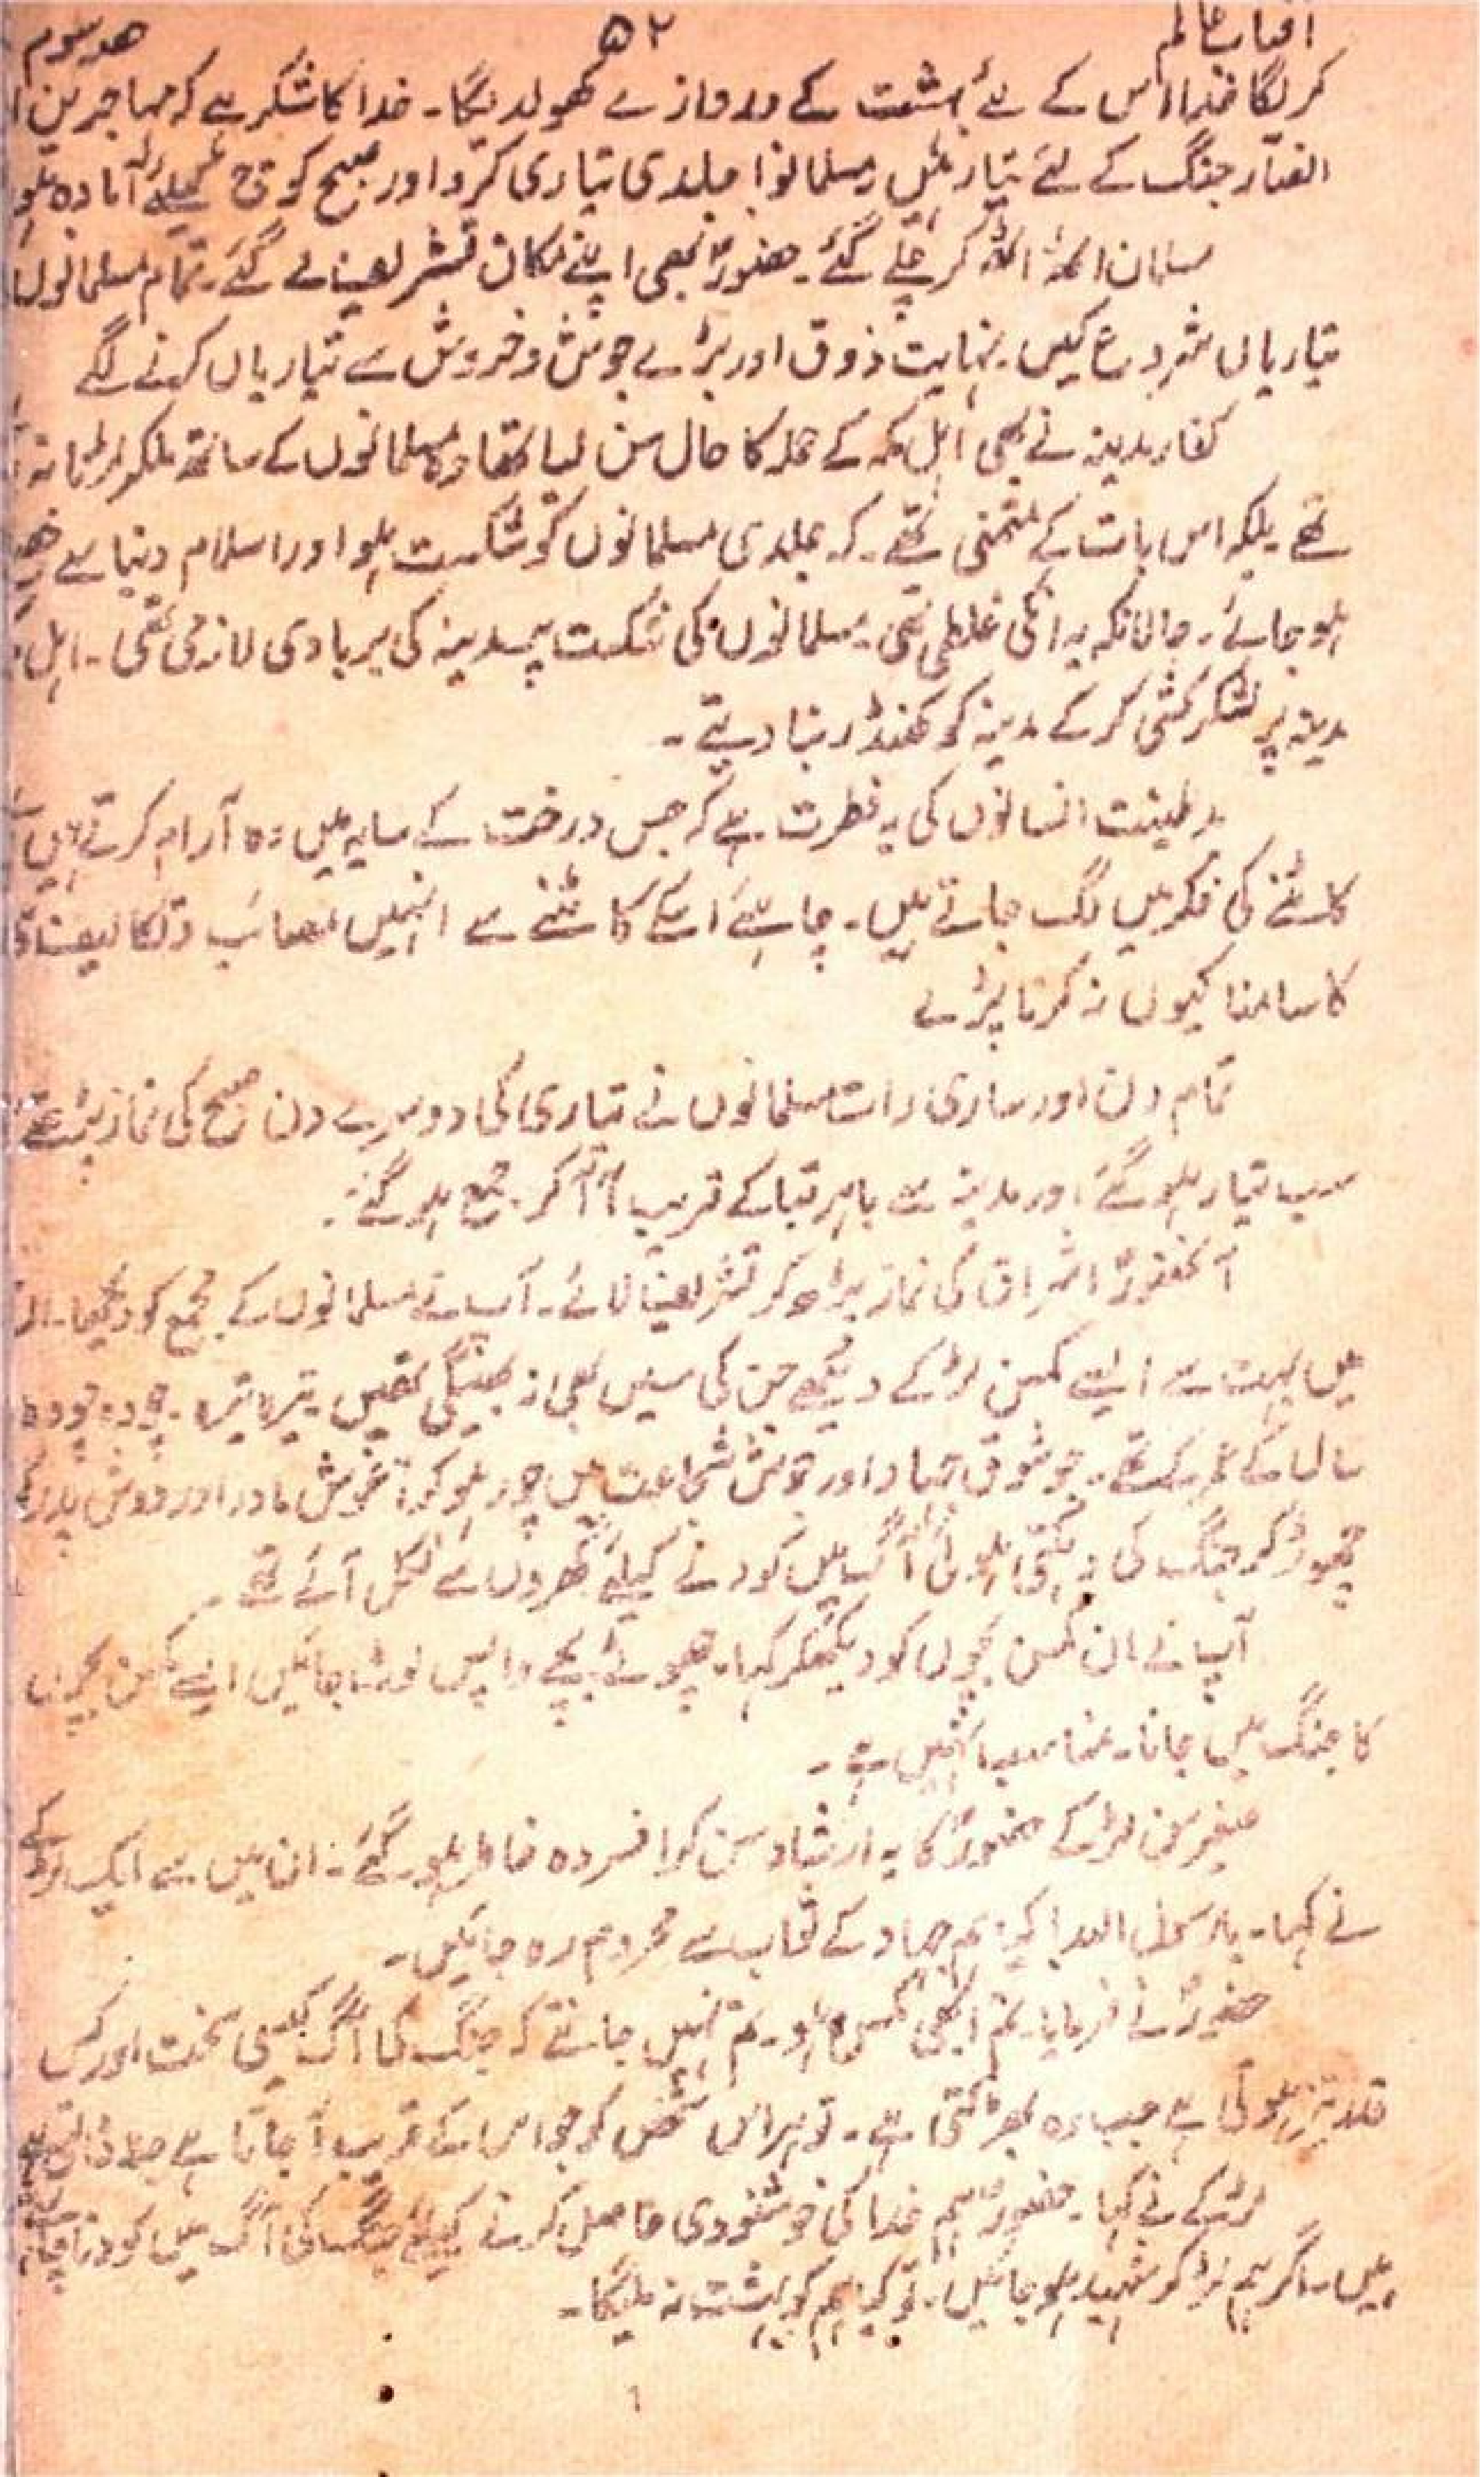 آفتاب عالم ۵۲ حصہ سوم
کریگا خدا اس کے لئے بہشت کے دروازے کھولدیگا۔ خدا کا شکر ہے کہ مہاجرین
انصار جنگ کے لئے تیار ہیں مسلمانو! جلدی تیاری کرو اور صبح کو کوچ کیلئے آمادہ ہو
مسلمان اٹھ اٹھ کر چلے گئے۔ حضورؐ بھی اپنے مکان تشریف لے گئے۔ تمام مسلمانوں
تیاریاں شروع کیں۔ نہایت ذوق اور بڑے جوش و خروش سے تیاریاں کرنے لگے
کفار مدینہ نے بھی اہل مکہ کے حملہ کا حال سن لیا تھا وہ مسلمانوں کے ساتھ ملکر لڑنا نہ
تھے بلکہ اس بات کے متمنی تھے۔ کہ جلدی مسلمانوں کو شکست ہو اور اسلام دنیا سے
ہو جائے۔ حالانکہ یہ انکی غلطی تھی۔ مسلمانوں کی شکست پر مدینہ کی بربادی لازمی تھی۔ اہل
مدینہ پر لشکر کشی کر کے مدینہ کو کھنڈر بنا دیتے۔
بد طینت انسانوں کی یہ فطرت ہے کہ جس درخت کے سایہ میں وہ آرام کرتے ہیں
کاٹنے کی فکر میں لگ جاتے ہیں۔ چاہے اسکے کاٹنے سے انہیں مصائب و تکالیف
کا سامنا کیوں نہ کرنا پڑے
تمام دن اور ساری رات مسلمانوں نے تیاری کی دوسرے دن صبح کی نماز پڑھتے
سب تیار ہو گئے اور مدینہ سے باہر قبا کے قریب آ آ کر جمع ہو گئے۔
آنحضورؐ اشراق کی نماز پڑھ کر تشریف لائے۔ آپ نے مسلمانوں کے مجمع کو دیکھا۔
میں بہت سے ایسے کمسن لڑکے دیکھے جن کی مسیں بھی نہ بھیگی تھیں۔ تیرہ تیرہ۔ چودہ چودہ
سال کے عمر کے تھے۔ جو شوق جہاد اور جوش شجاعت میں چور ہو کر آغوش مادر اور دوش پدر
چھوڑ کر جنگ کی دہکتی ہوئی آگ میں کودنے کیلئے گھروں سے نکل آئے تھے۔
آپ نے ان کمسن بچوں کو دیکھکر کہا۔ چھوٹے بچے واپس لوٹ جائیں ایسے کمسن بچوں
کا جنگ میں جانا۔ مناسب نہیں ہے۔
صغیر سن لڑکے حضورؐ کا یہ ارشاد سن کر افسردہ خاطر ہو گئے۔ ان میں سے ایک لڑکے
نے کہا۔ یا رسول اللہ! کیا ہم جہاد کے ثواب سے محروم رہ جائیں۔
حضورؐ نے فرمایا۔ تم ابھی کمسن ہو۔ تم نہیں جانتے کہ جنگ کی آگ کتنی سخت اور کس
قدر تیز ہوتی ہے جب وہ بھڑکتی ہے۔ تو ہر اس شخص کو جو اس کے قریب آ جاتا ہے جلا ڈالتی ہے
لڑکے نے کہا۔ حضورؐ ہم خدا کی خوشنودی حاصل کرنے کیلئے جنگ کی آگ میں کودنا چاہتے
ہیں۔ اگر ہم لڑ کر شہید ہو جائیں۔ تو کیا ہم کو بہشت نہ ملیگا۔